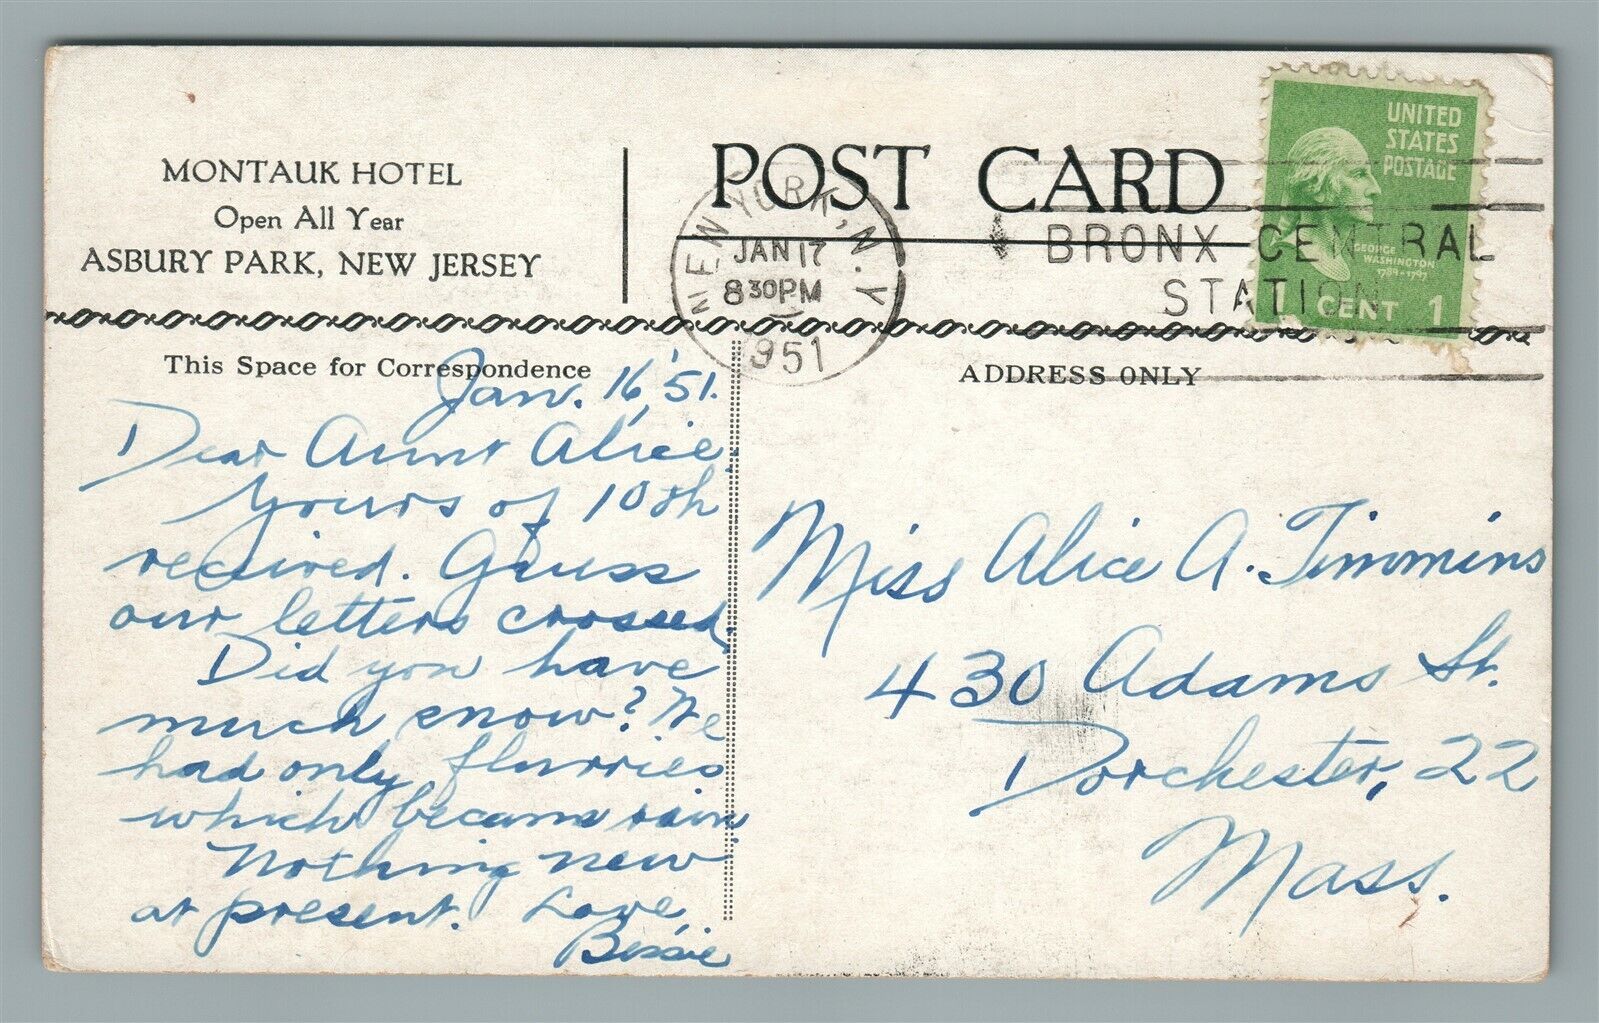 MONTAUK HOTEL
Open All Year
ASBURY PARK, NEW JERSEY
POST CARD
UNITED
STATES
POSTAGE
GEORGE
WASHINGTON
1789-1797
1 CENT 1
NEW YORK, N.Y.
JAN 17
8 30PM
1951
BRONX CENTRAL
STATION
This Space for Correspondence
ADDRESS ONLY
Jan. 16, '51.
Dear Aunt Alice:
Yours of 10th
received. Guess
our letters crossed.
Did you have
much snow? We
had only flurries
which became rain.
Nothing new
at present. Love,
Bessie
Miss Alice A. Timmins
430 Adams St.
Dorchester, 22
Mass.